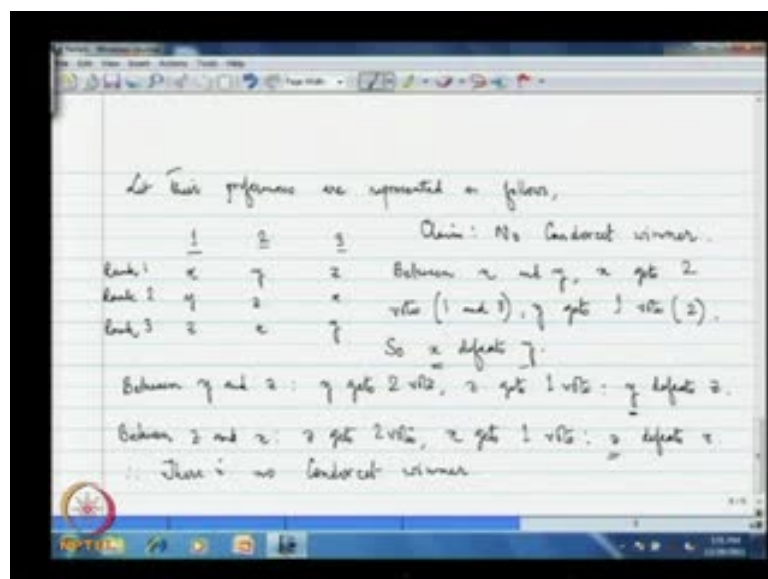 Let their preferences are represented as follows,
1 2 3 Claim: No Condorcet winner.
Rank 1 x y z Between x and y, x gets 2
Rank 2 y z x votes (1 and 3), y gets 1 vote (2).
Rank 3 z x y
So x defeats y.
Between y and z: y gets 2 votes, z gets 1 vote: y defeats z.
Between z and x: z gets 2 votes, x gets 1 vote: z defeats x.
∴ There is no Condorcet winner
NPTEL